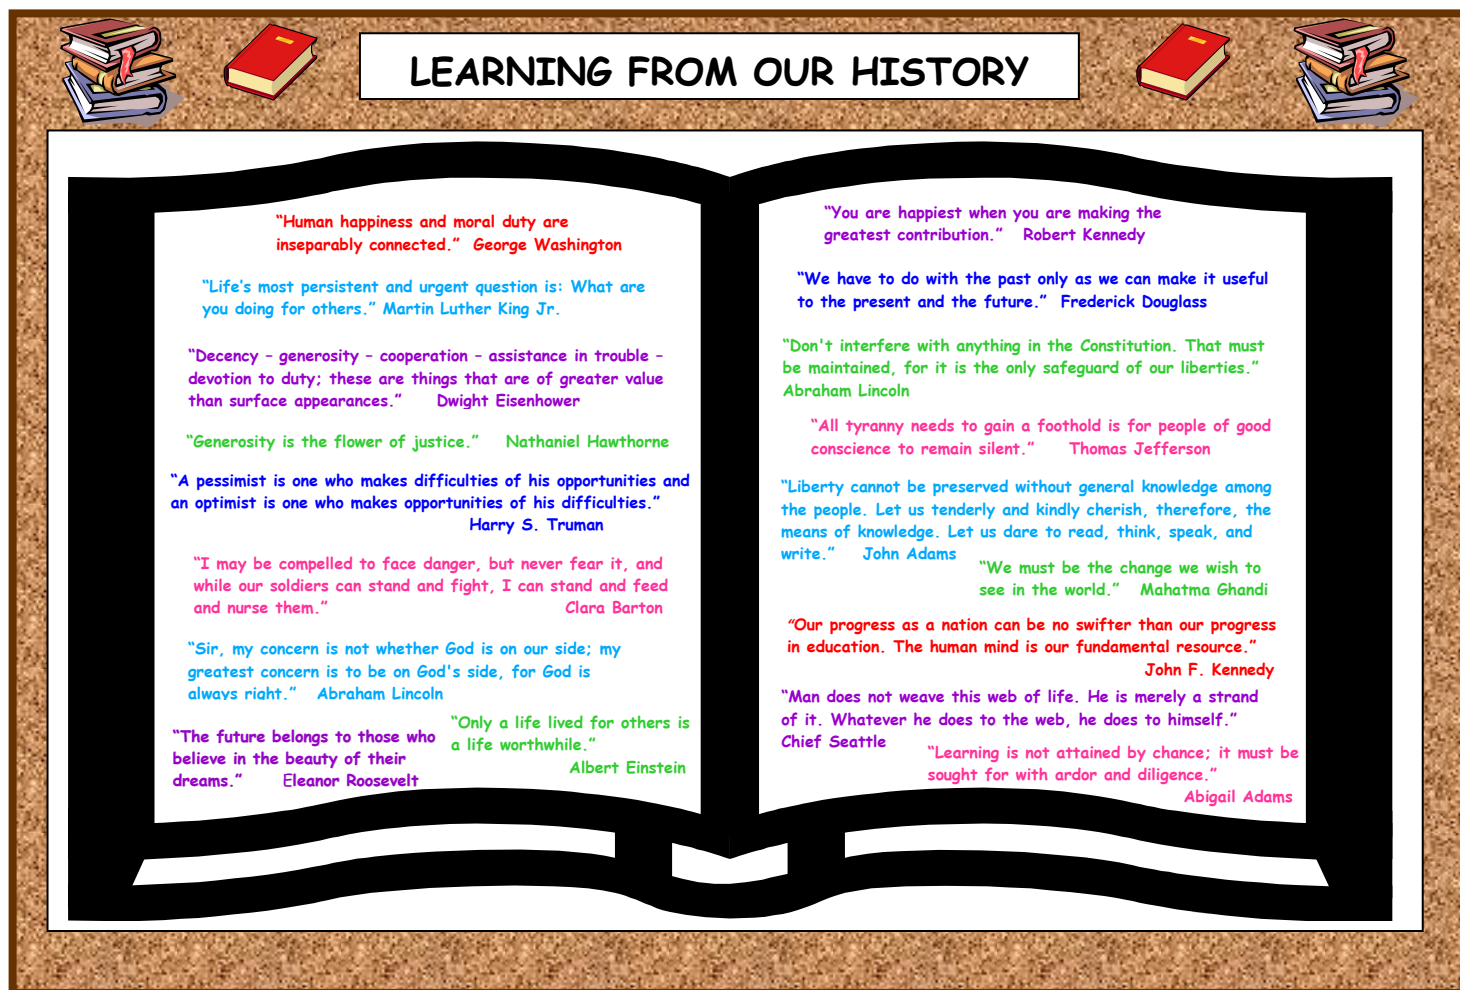 LEARNING FROM OUR HISTORY
“Human happiness and moral duty are
inseparably connected.” George Washington
“Life’s most persistent and urgent question is: What are
you doing for others.” Martin Luther King Jr.
“Decency – generosity – cooperation – assistance in trouble –
devotion to duty; these are things that are of greater value
than surface appearances.” Dwight Eisenhower
“Generosity is the flower of justice.” Nathaniel Hawthorne
“A pessimist is one who makes difficulties of his opportunities and
an optimist is one who makes opportunities of his difficulties.”
Harry S. Truman
“I may be compelled to face danger, but never fear it, and
while our soldiers can stand and fight, I can stand and feed
and nurse them.” Clara Barton
“Sir, my concern is not whether God is on our side; my
greatest concern is to be on God's side, for God is
always right.” Abraham Lincoln
“The future belongs to those who
believe in the beauty of their
dreams.” Eleanor Roosevelt
“Only a life lived for others is
a life worthwhile.”
Albert Einstein
“You are happiest when you are making the
greatest contribution.” Robert Kennedy
“We have to do with the past only as we can make it useful
to the present and the future.” Frederick Douglass
“Don't interfere with anything in the Constitution. That must
be maintained, for it is the only safeguard of our liberties.”
Abraham Lincoln
“All tyranny needs to gain a foothold is for people of good
conscience to remain silent.” Thomas Jefferson
“Liberty cannot be preserved without general knowledge among
the people. Let us tenderly and kindly cherish, therefore, the
means of knowledge. Let us dare to read, think, speak, and
write.” John Adams
“We must be the change we wish to
see in the world.” Mahatma Ghandi
“Our progress as a nation can be no swifter than our progress
in education. The human mind is our fundamental resource.”
John F. Kennedy
“Man does not weave this web of life. He is merely a strand
of it. Whatever he does to the web, he does to himself.”
Chief Seattle
“Learning is not attained by chance; it must be
sought for with ardor and diligence.”
Abigail Adams